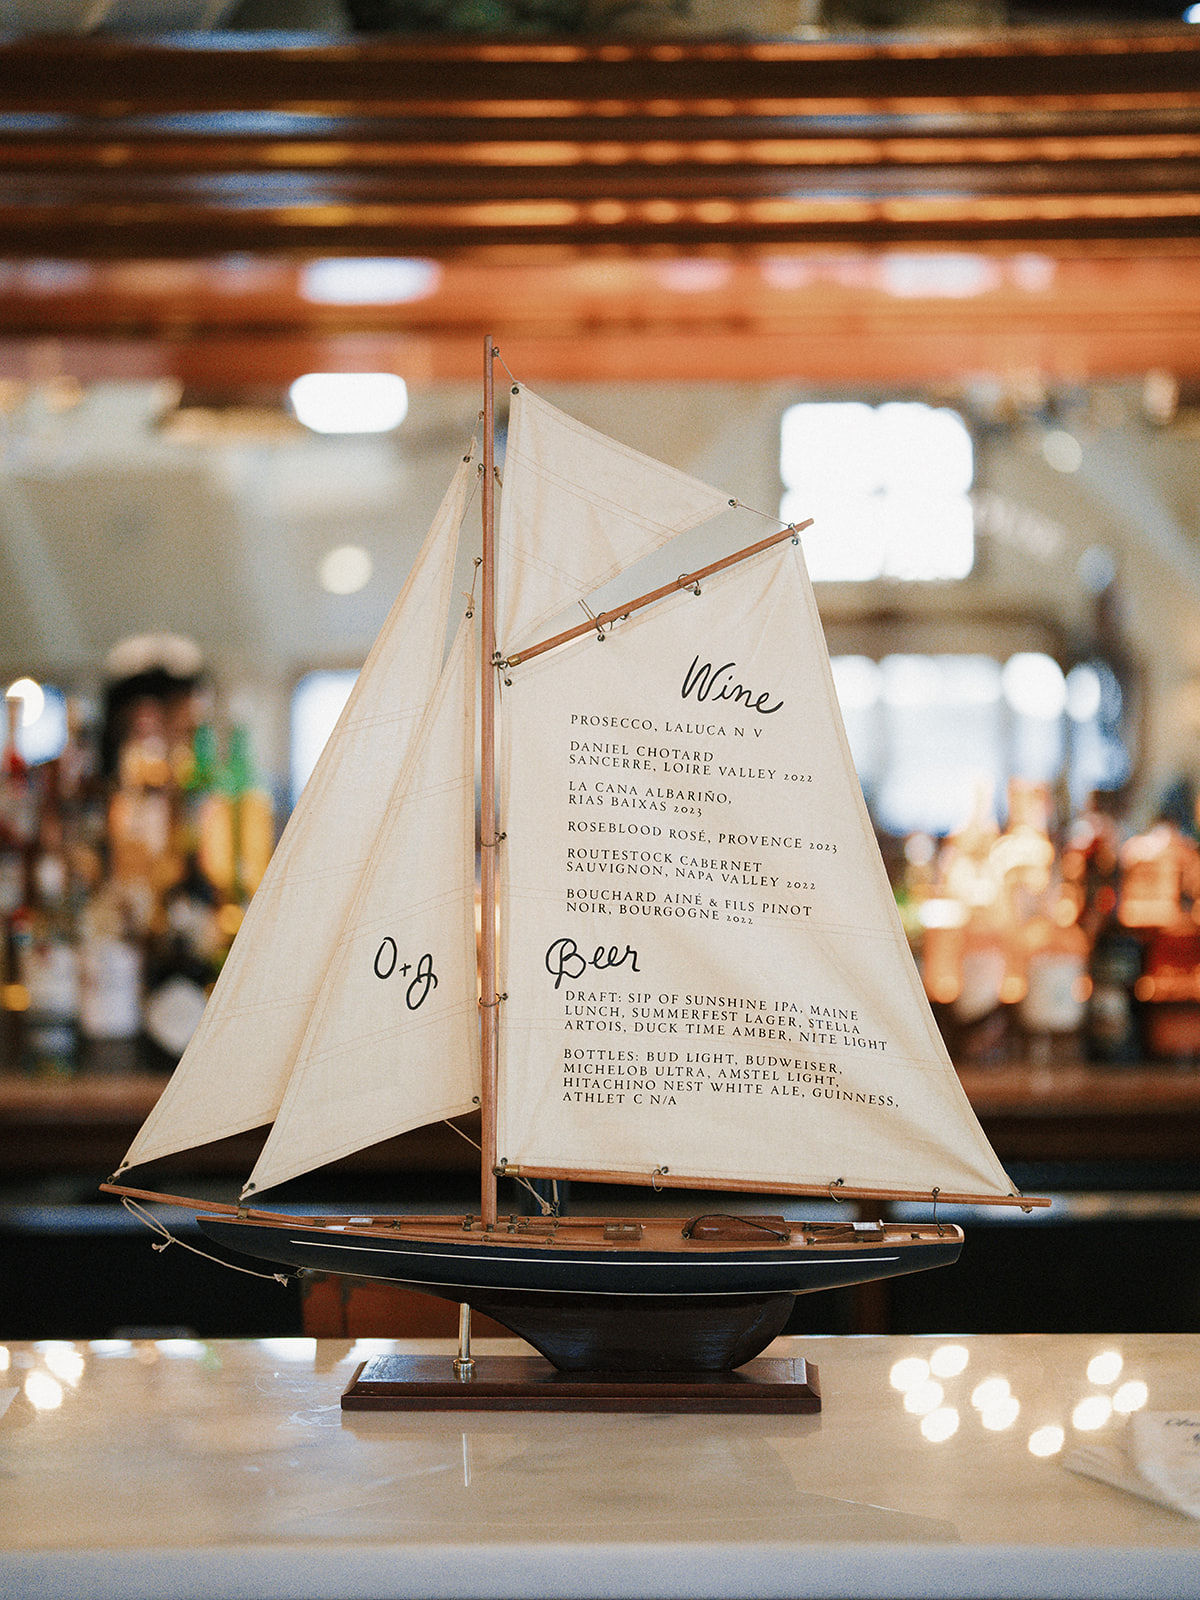 Wine
PROSECCO, LALUCA N V
DANIEL CHOTARD
SANCERRE, LOIRE VALLEY 2022
LA CANA ALBARIÑO,
RIAS BAIXAS 2023
ROSEBLOOD ROSÉ, PROVENCE 2023
ROUTESTOCK CABERNET
SAUVIGNON, NAPA VALLEY 2022
BOUCHARD AINÉ & FILS PINOT
NOIR, BOURGOGNE 2022
O+J
Beer
DRAFT: SIP OF SUNSHINE IPA, MAINE
LUNCH, SUMMERFEST LAGER, STELLA
ARTOIS, DUCK TIME AMBER, NITE LIGHT
BOTTLES: BUD LIGHT, BUDWEISER,
MICHELOB ULTRA, AMSTEL LIGHT,
HITACHINO NEST WHITE ALE, GUINNESS,
ATHLET C N/A